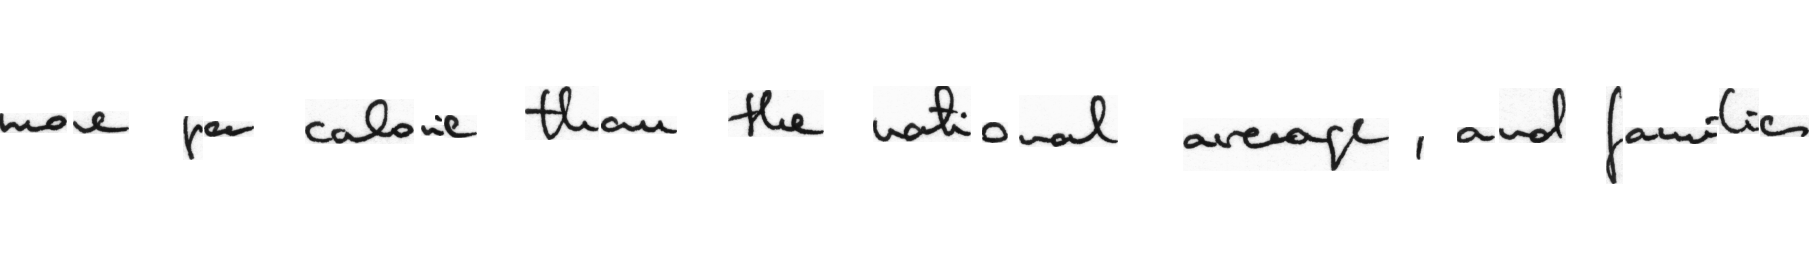 more per calorie than the national average, and families